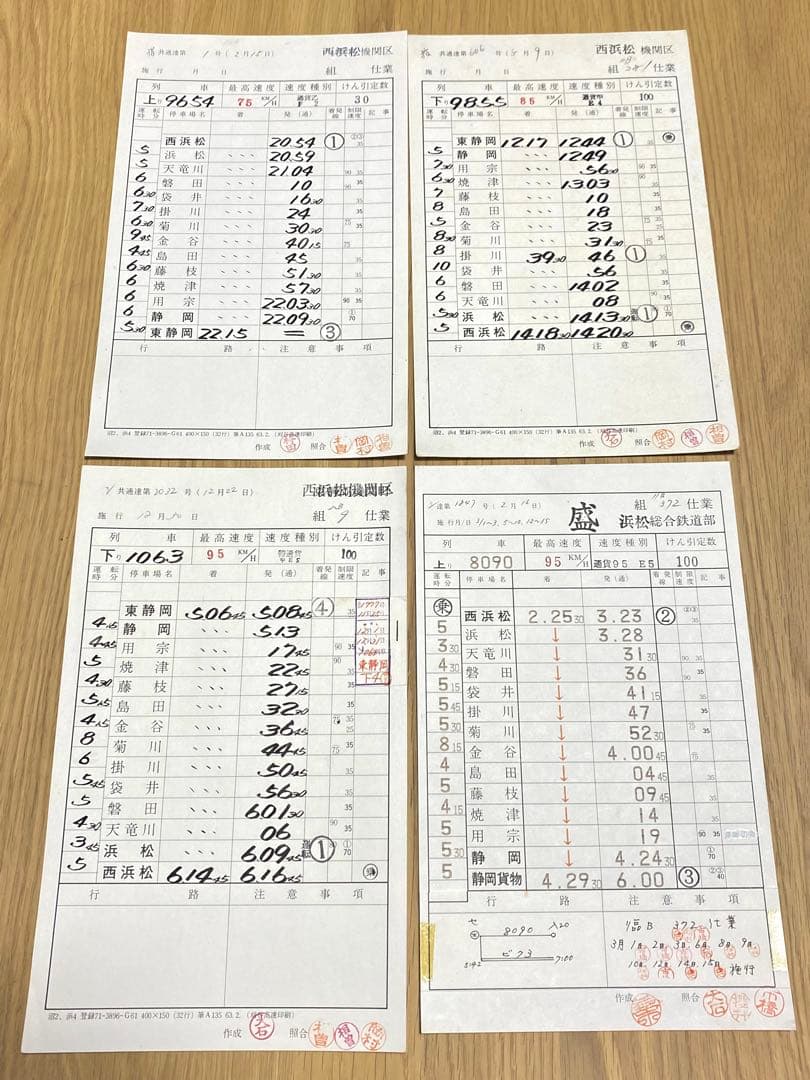 共通達第 1号(2月15日) 西浜松機関区
施行 月 日 組 仕業
列車 最高速度 速度種別 けん引定数
上り 9654 75 KM/H 通貨乙 F2 30
運転時分 停車場名 着 発(通) 着発線 制限速度 記事
西浜松 20.54 ① 35
5 浜松 20.59
5 天竜川 21.04 90 35
6 磐田 10
6 30 袋井 16 30 35
7 30 掛川 24
6 30 菊川 30 30 75
9 45 金谷 40 15 75
4 45 島田 45 35
6 30 藤枝 51 30
6 焼津 57 30
6 用宗 22.03 30 90 35
6 静岡 22.09 30 ① 70
5 30 東静岡 22.15 = ③
行路 注意事項
沼2、浜4 登録71-3896-G61 400×150 (32行) 筆A135 63.2.
作成 照合
共通達第 606号(5月9日) 西浜松機関区
施行 月 日 組 仕業
列車 最高速度 速度種別 けん引定数
下り 9855 85 KM/H 通貨甲 E4 100
運転時分 停車場名 着 発(通) 着発線 制限速度 記事
東静岡 12.17 12.44 ① 35 乗
5 静岡 12.49
7 30 用宗 56 30 90 35
6 30 焼津 13.03
7 藤枝 10
8 島田 18 35
5 金谷 23 75 35
8 30 菊川 31 30 75
8 掛川 39 30 46 ①
10 袋井 56 35
6 磐田 14.02
6 天竜川 08 35
5 30 浜松 14.13 30 運転 ① ① 70
5 西浜松 14.18 30 14.20 30 乗
行路 注意事項
沼2、浜4 登録71-3896-G61 400×150 (32行) 筆A135 63.2.
作成 照合
共通達第 3032号(12月22日) 西浜松機関区
施行 12月30日 組 9 仕業
列車 最高速度 速度種別 けん引定数
下り 1063 95 KM/H 100
運転時分 停車場名 着 発(通) 着発線 制限速度 記事
東静岡 5.06 45 5.08 45 ④ 35
4 15 静岡 5.13
4 45 用宗 17 45 90 35
5 焼津 22 45
4 30 藤枝 27 15
5 15 島田 32 30 35
4 15 金谷 36 45 75 35
8 菊川 44 45 75
6 掛川 50 45 35
5 45 袋井 56 30 35
5 磐田 6.01 30
4 30 天竜川 06 35
3 45 浜松 6.09 45 運転 ① ① 70
5 西浜松 6.14 45 6.16 45 乗
東静岡
行路 注意事項
沼2、浜4 登録71-3896-G61 400×150 (32行) 筆A135 63.2.
作成 大石 照合
達第 1347号(2月16日) 組 372 仕業
施行月日 3/1~3. 5~10. 12~15 盛 浜松総合鉄道部
列車 最高速度 速度種別 けん引定数
上り 8090 95 KM/H 通貨95 E5 100
運転時分 停車場名 着 発(通) 着発線 制限速度 記事
乗 西浜松 2.25 30 3.23 ② 35
5 浜松 ↓ 3.28
3 30 天竜川 ↓ 31 30 90 35
4 30 磐田 ↓ 36
5 15 袋井 ↓ 41 15 35
5 45 掛川 ↓ 47
5 30 菊川 ↓ 52 30 75
8 15 金谷 ↓ 4.00 45 75 35
4 島田 ↓ 04 45 35
5 藤枝 ↓ 09 45
4 15 焼津 ↓ 14
5 用宗 ↓ 19 90 35
5 30 静岡 ↓ 4.24 30 ① 70
5 静岡貨物 4.29 30 6.00 ③ 40
行路 注意事項
8090 入20
ピ73
5:42 7:00
臨B 372仕業
3月1日 2日 3日 6日 8日 9日
10日 12日 14日 15日 施行
作成 照合 大石 小橋